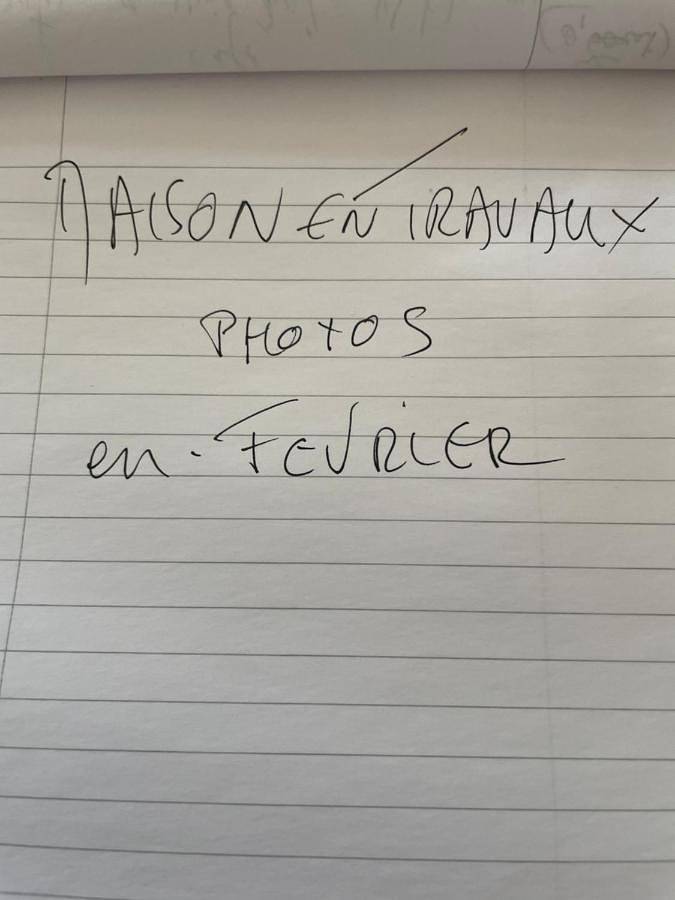 MAISON EN TRAVAUX
PHOTOS
en. FEVRIER